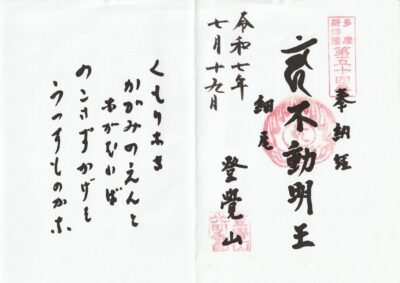 多摩
新四國
第五十四
奉納経
不動明王
細尾
登覺山
令和七年
七月十九日
くもりなき
かがみのえんと
ながむれば
のこさずかげを
うつすものかな